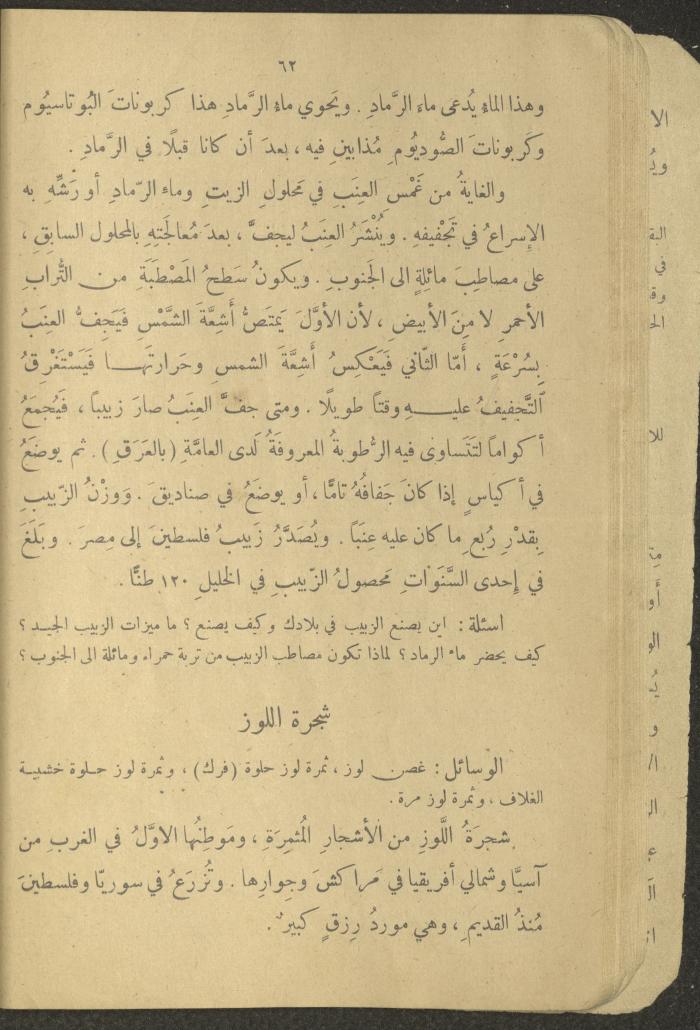 ٦٢
وهذا الماءُ يُدعى ماءَ الرَّمادِ . ويَحوي ماءُ الرَّمادِ هذا كربوناتَ البُوتاسيُوم
وكَربوناتَ الصُّوديُومِ مُذابَينِ فيه ، بعدَ أن كانا قبلًا في الرَّمادِ .
والغايةُ من غَمْسِ العِنَبِ في مَحلولِ الزيتِ وماءِ الرّمادِ أو رَشِّهِ به
الإسراعُ في تَجْفيفهِ . ويُنْشَرُ العِنَبُ ليجفَّ ، بعدَ مُعالَجَتِهِ بالمحلول السابقِ ،
على مصاطِبَ مائلةٍ الى الجَنوبِ . ويكونُ سَطحُ المَصْطَبَةِ من التُّرابِ
الأحمرِ لا مِنَ الأبيضِ ، لأن الأوَّلَ يَمتَصُّ أَشِعَّةَ الشَّمْسِ فَيَجِفُّ العِنَبُ
بِسُرْعَةٍ ، أَمّا الثّاني فَيَعْكِسُ أَشِعَّةَ الشمسِ وحَرارتَهــا فَيَسْتَغْرِقُ
اَلتَّجفيفُ عليــهِ وقتاً طويلًا . ومتى جفَّ العِنَبُ صارَ زبيباً ، فَيُجمَعُ
أكواماً لتَتَساوى فيه الرُّطوبةُ المعروفةُ لَدى العامَّةِ (بالعَرَقِ ) . ثم يوضَعُ
في أكياسٍ إذا كانَ جَفافُهُ تامًّا ، أو يوضَعُ في صناديقَ . ووزْنُ الزّبيبِ
بِقدْرِ رُبعِ ما كان عليه عِنَبًا . ويُصَدَّرُ زَبيبُ فلسطينَ إلى مِصرَ . وبَلَغَ
في إحدى السَّنَوَاتِ مَحصولُ الزّبيبِ في الخليلِ ١٢٠ طنًّا .
اسئلة : اين يصنع الزبيب في بلادك وكيف يصنع ؟ ما ميزات الزبيب الجيــد ؟
كيف يحضر ماء الرماد ؟ لماذا تكون مصاطب الزبيب من تربة حمراء ومائلة الى الجنوب ؟
شجرة اللوز
الوسائل : غصن لوز ، ثمرة لوز حلوة (فرك) ، وثمرة لوز حــلوة خشبيــة
الغلاف ، وثمرة لوز مرة .
شجرَةُ اللَّوزِ من الأشجارِ المُثمِرَةِ ، ومَوطِنُها الاوَّلُ في الغربِ من
آسيَّا وشمالي أفريقيا في مَراكشَ وجِوارِها . وتُزرَعُ في سوريّا وفلسطينَ
مُنذُ القديمِ ، وهي موردُ رِزقٍ كبيرٌ .